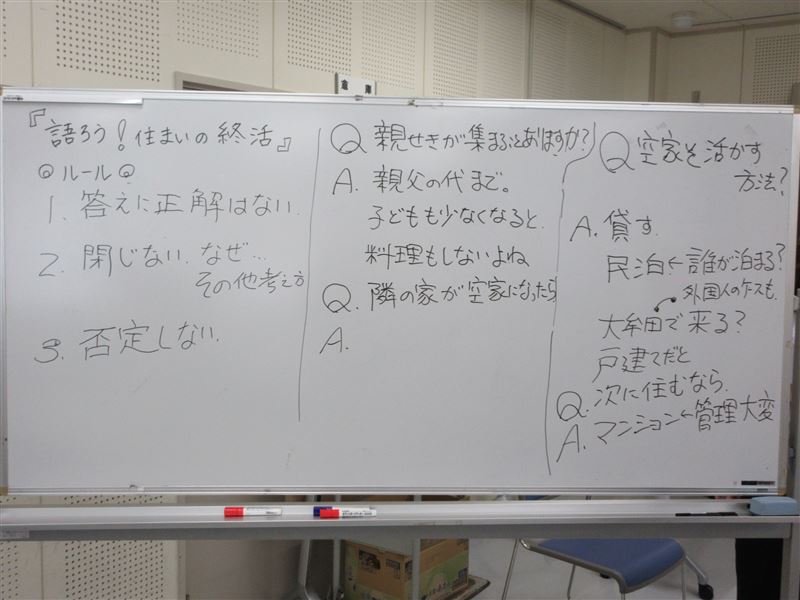 倉庫
『語ろう！住まいの終活』
◎ルール◎
1. 答えに正解はない.
2. 閉じない. なぜ…
その他考え方
3. 否定しない.
Q 親せきが集まることありますか?
A. 親父の代まで。
子どもも少なくなると.
料理もしないよね
Q. 隣の家が空家になったら
A.
Q 空家を活かす
方法?
A. 貸す.
民泊←誰が泊まる?
外国人のケースも.
大牟田で来る?
戸建てだと
Q. 次に住むなら.
A. マンション←管理大変